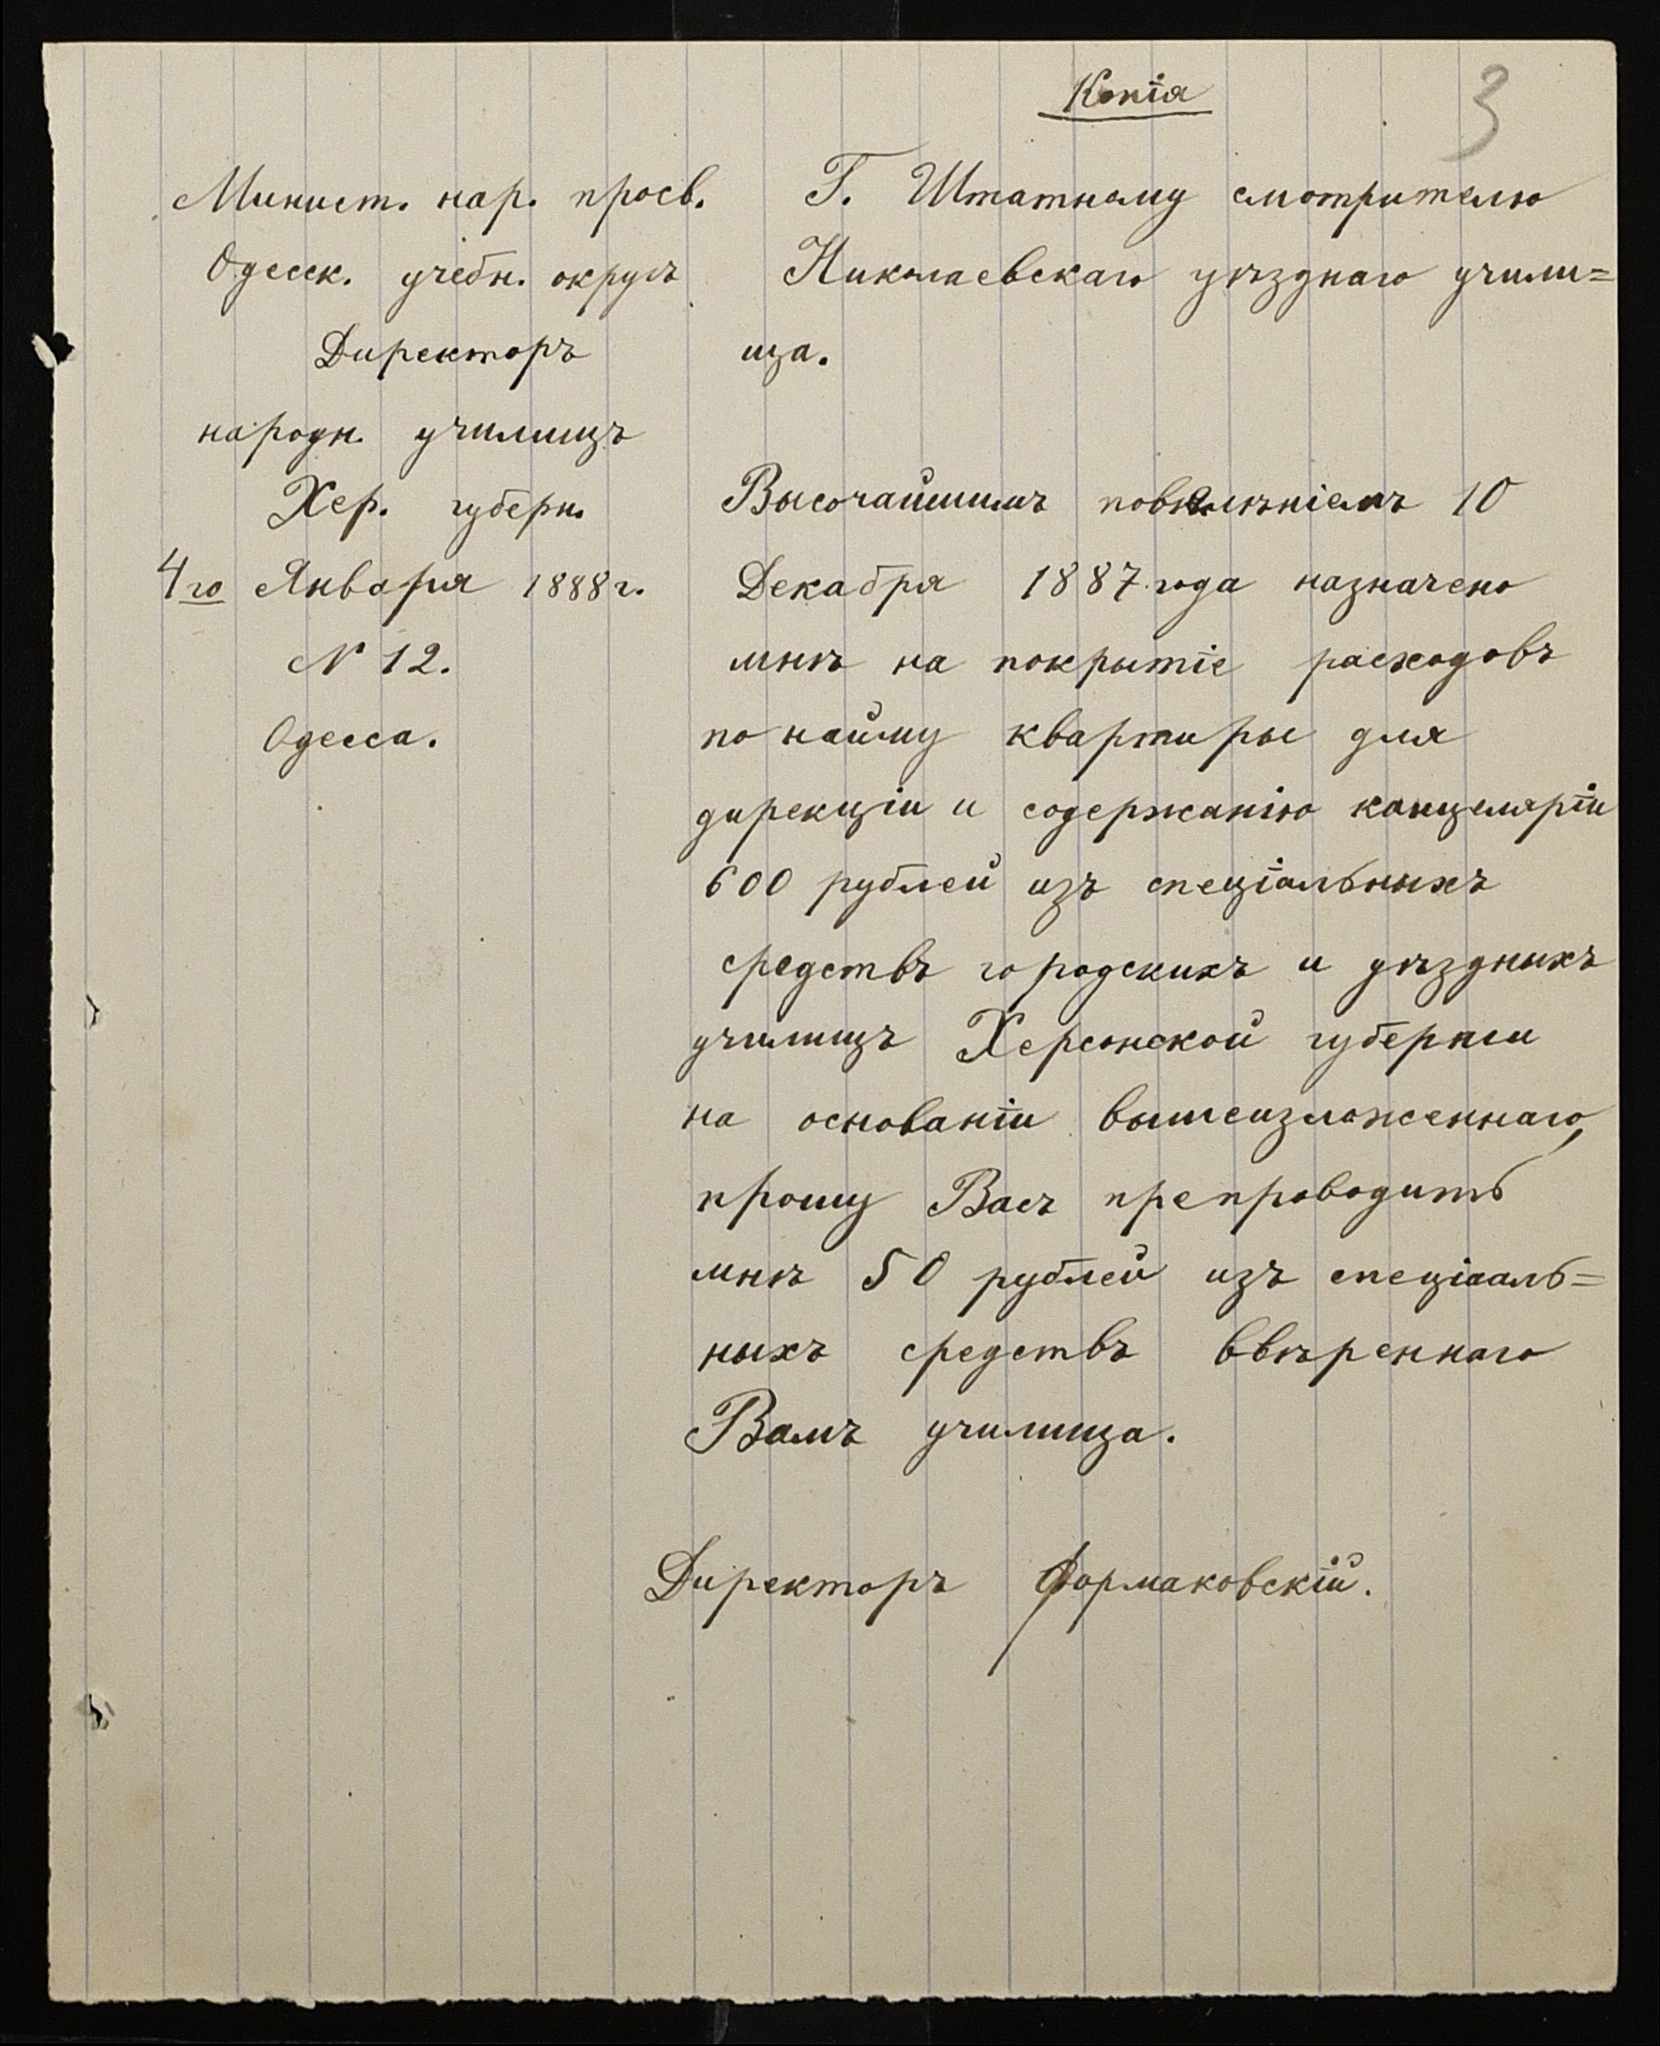 Копія
3
Минист. нар. просв.
Одесск. учебн. округъ
Директоръ
народн. училищъ
Хер. губерн.
4го Января 1888 г.
N 12.
Одесса.
Г. Штатному смотрителю
Николаевскаго уѣзднаго учили=
ща.
Высочайшимъ повелѣніемъ 10
Декабря 1887 года назначено
мнѣ на покрытіе расходовъ
по найму квартиры для
дирекціи и содержанію канцеляріи
600 рублей изъ спеціальныхъ
средствъ городскихъ и уѣздныхъ
училищъ Херсонской губерніи
на основаніи вышеизложеннаго,
прошу Васъ препроводить
мнѣ 50 рублей изъ спеціаль=
ныхъ средствъ ввѣреннаго
Вамъ училища.
Директоръ Фармаковскій.